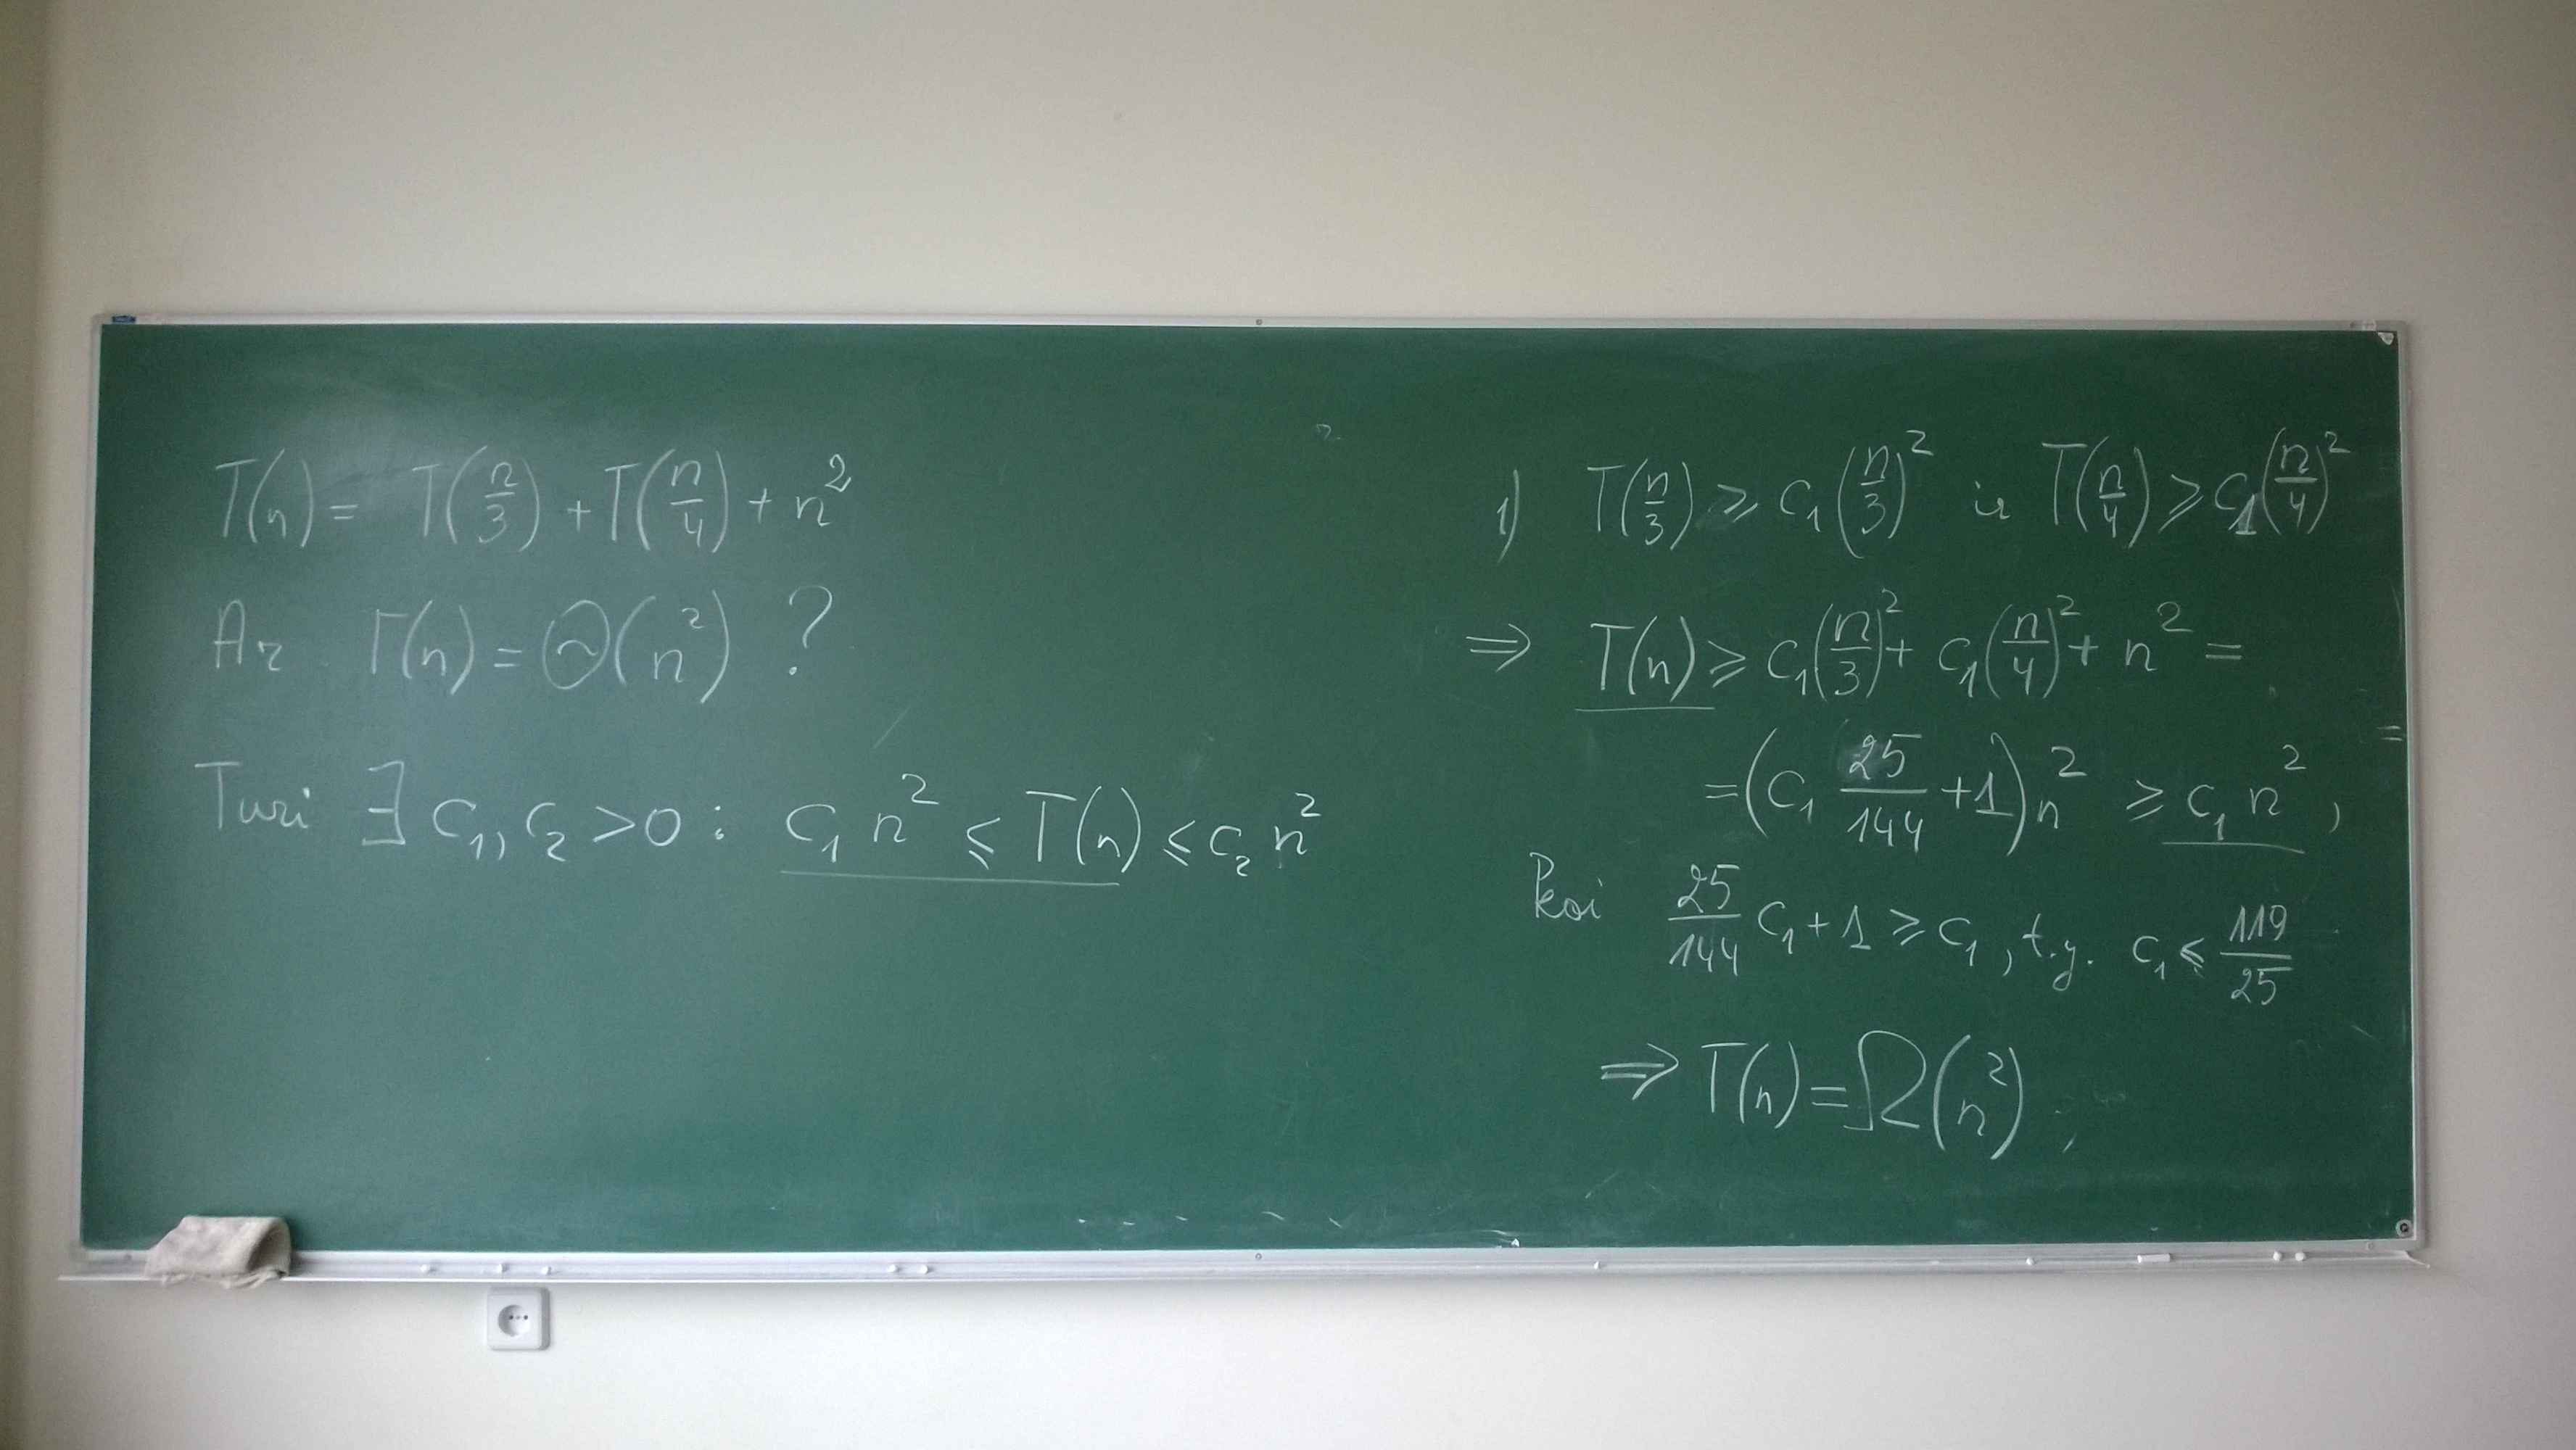 T(n) = T(n/3) + T(n/4) + n²
Ar T(n) = Θ(n²) ?
Turi ∃ c₁, c₂ > 0 : c₁ n² ⩽ T(n) ⩽ c₂ n²
1) T(n/3) ⩾ c₁(n/3)² ir T(n/4) ⩾ c₁(n/4)²
⇒ T(n) ⩾ c₁(n/3)² + c₁(n/4)² + n² =
= (c₁ 25/144 + 1) n² ⩾ c₁ n² ,
kai 25/144 c₁ + 1 ⩾ c₁ , t.y. c₁ ⩽ 119/25
⇒ T(n) = Ω(n²) ,